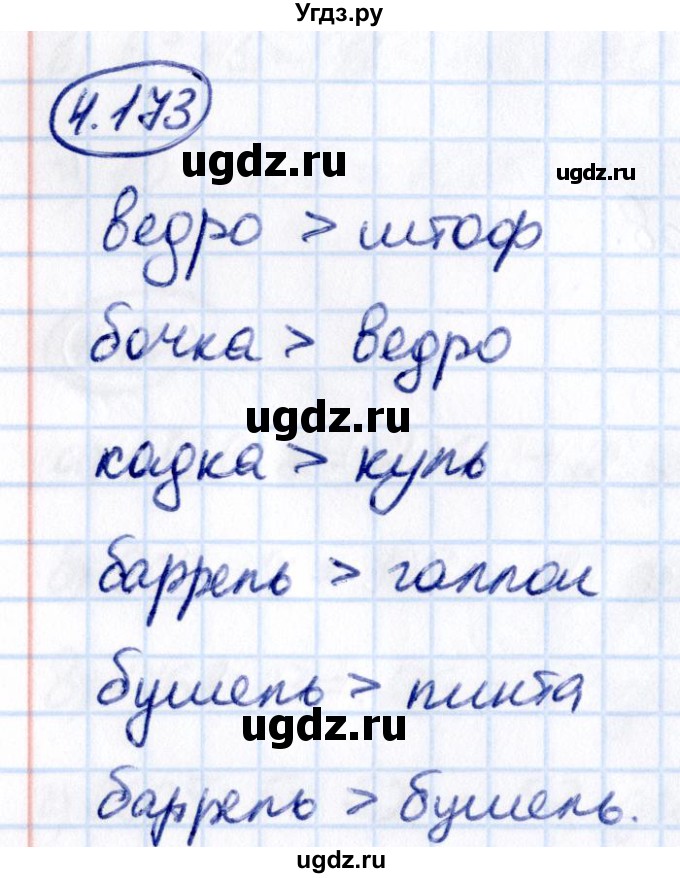 Угдз.ру
4.173
ugdz.ru
ugdz.ru
ведро > штоф
бочка > ведро
ugdz.ru
кадка > куль
баррель > галлон
бушель > пинта
ugdz.ru
баррель > бушель.
ugdz.ru